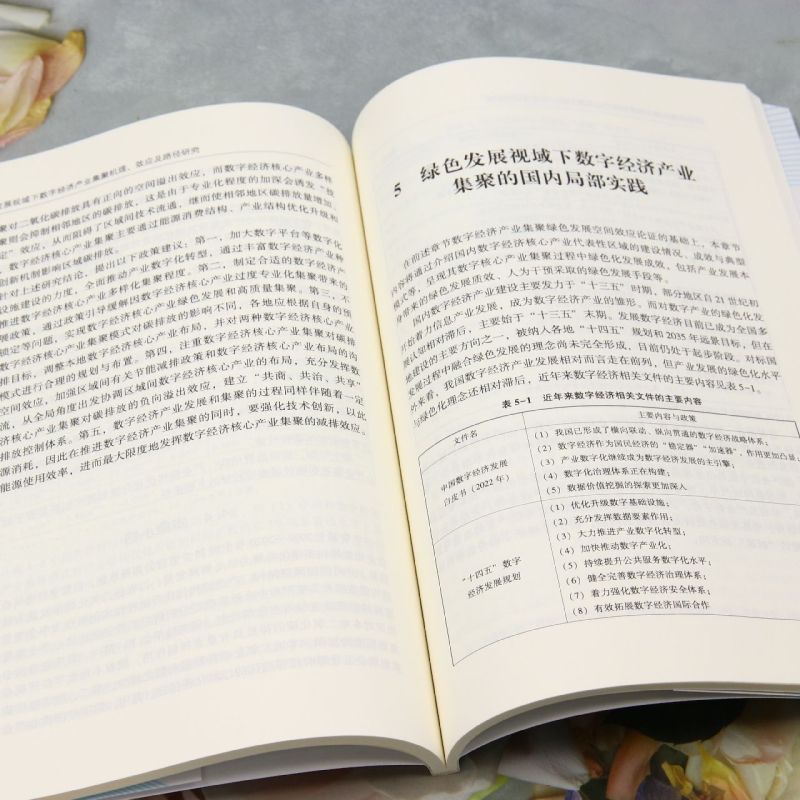 发展视域下数字经济产业集聚机理、效应及路径研究
聚对二氧化碳排放具有正向的空间溢出效应，而数字经济核心产业多样
聚则会抑制相邻地区的碳排放，这是由于专业化程度的加深会诱发“锁
定”效应，从而阻碍了区域间技术流通，继而使相邻地区碳排放量增加。
，数字经济核心产业集聚主要通过能源消费结构、产业结构优化升级和
创新机制影响区域碳排放。
针对上述研究结论，提出以下政策建议：第一，加大数字平台等数字化
设施建设的力度，全面推动产业数字化转型，通过丰富数字经济产业种
推进数字经济核心产业多样化集聚程度。第二，制定合适的数字经济产
展政策，通过政策引导缓解因数字经济核心产业过度专业化集聚带来的
锁定等问题，实现数字经济核心产业绿色发展和高质量集聚。第三，不
数字经济核心产业集聚模式对碳排放的影响不同，各地应根据自身的预
排目标，调整本地数字经济核心产业布局，并对两种数字经济核心产业
模式进行合理的规划与布置。第四，注重数字经济核心产业集聚对碳排
空间效应，加强区域间有关节能减排政策和数字经济核心产业布局的沟
流，从全局角度出发协调区域间数字经济核心产业的布局，充分发挥数
济核心产业集聚对碳排放的负向溢出效应，建立“共商、共治、共享”
排放控制体系。第五，数字经济产业发展和集聚的过程同样伴随着一定
源消耗，因此在推进数字经济产业集聚的同时，要强化技术创新，以此
能源使用效率，进而最大限度地发挥数字经济核心产业集聚的减排效应。
5 绿色发展视域下数字经济产业
集聚的国内局部实践
在前述章节数字经济产业集聚绿色发展空间效应论证的基础上，本章节
内容将通过介绍国内数字经济核心产业代表性区域的建设情况、成效与典型
模式等，呈现其数字经济核心产业集聚过程中绿色化发展成效，包括产业发展本
身带来的绿色发展质效、人为干预采取的绿色发展手段等。
国内数字经济产业建设主要发力于“十三五”时期，部分地区自21世纪初
开始着力信息产业发展，成为数字经济产业的雏形。而对数字产业的绿色化发
展认知相对滞后，主要始于“十三五”末期。发展数字经济目前已成为全国多
地建设的主要方向之一，被纳入各地“十四五”规划和2035年远景目标，但在
发展过程中融合绿色发展的理念尚未完全形成，目前仍处于起步阶段。对标国
外来看，我国数字经济产业发展相对而言走在前列，但产业发展的绿色化水平
与绿色化理念还相对滞后，近年来数字经济相关文件的主要内容见表5-1。
表5-1 近年来数字经济相关文件的主要内容
文件名
主要内容与政策
中国数字经济发展
白皮书（2022年）
（1）我国已形成了横向联动、纵向贯通的数字经济战略体系；
（2）数字经济作为国民经济的“稳定器”“加速器”，作用更加凸显；
（3）产业数字化继续成为数字经济发展的主引擎；
（4）数字化治理体系正在构建；
（5）数据价值挖掘的探索更加深入
“十四五”数字
经济发展规划
（1）优化升级数字基础设施；
（2）充分发挥数据要素作用；
（3）大力推进产业数字化转型；
（4）加快推动数字产业化；
（5）持续提升公共服务数字化水平；
（6）健全完善数字经济治理体系；
（7）着力强化数字经济安全体系；
（8）有效拓展数字经济国际合作